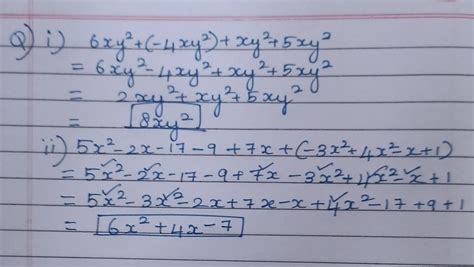 Q) i) 6xy²+(-4xy²)+xy²+5xy²
= 6xy²-4xy²+xy²+5xy²
= 2xy²+xy²+5xy²
= 8xy²
ii) 5x²-2x-17-9+7x+(-3x²+4x²-x+1)
= 5x²-2x-17-9+7x-3x²+4x²-x+1
= 5x²-3x²-2x+7x-x+4x²-17+9+1
= 6x²+4x-7